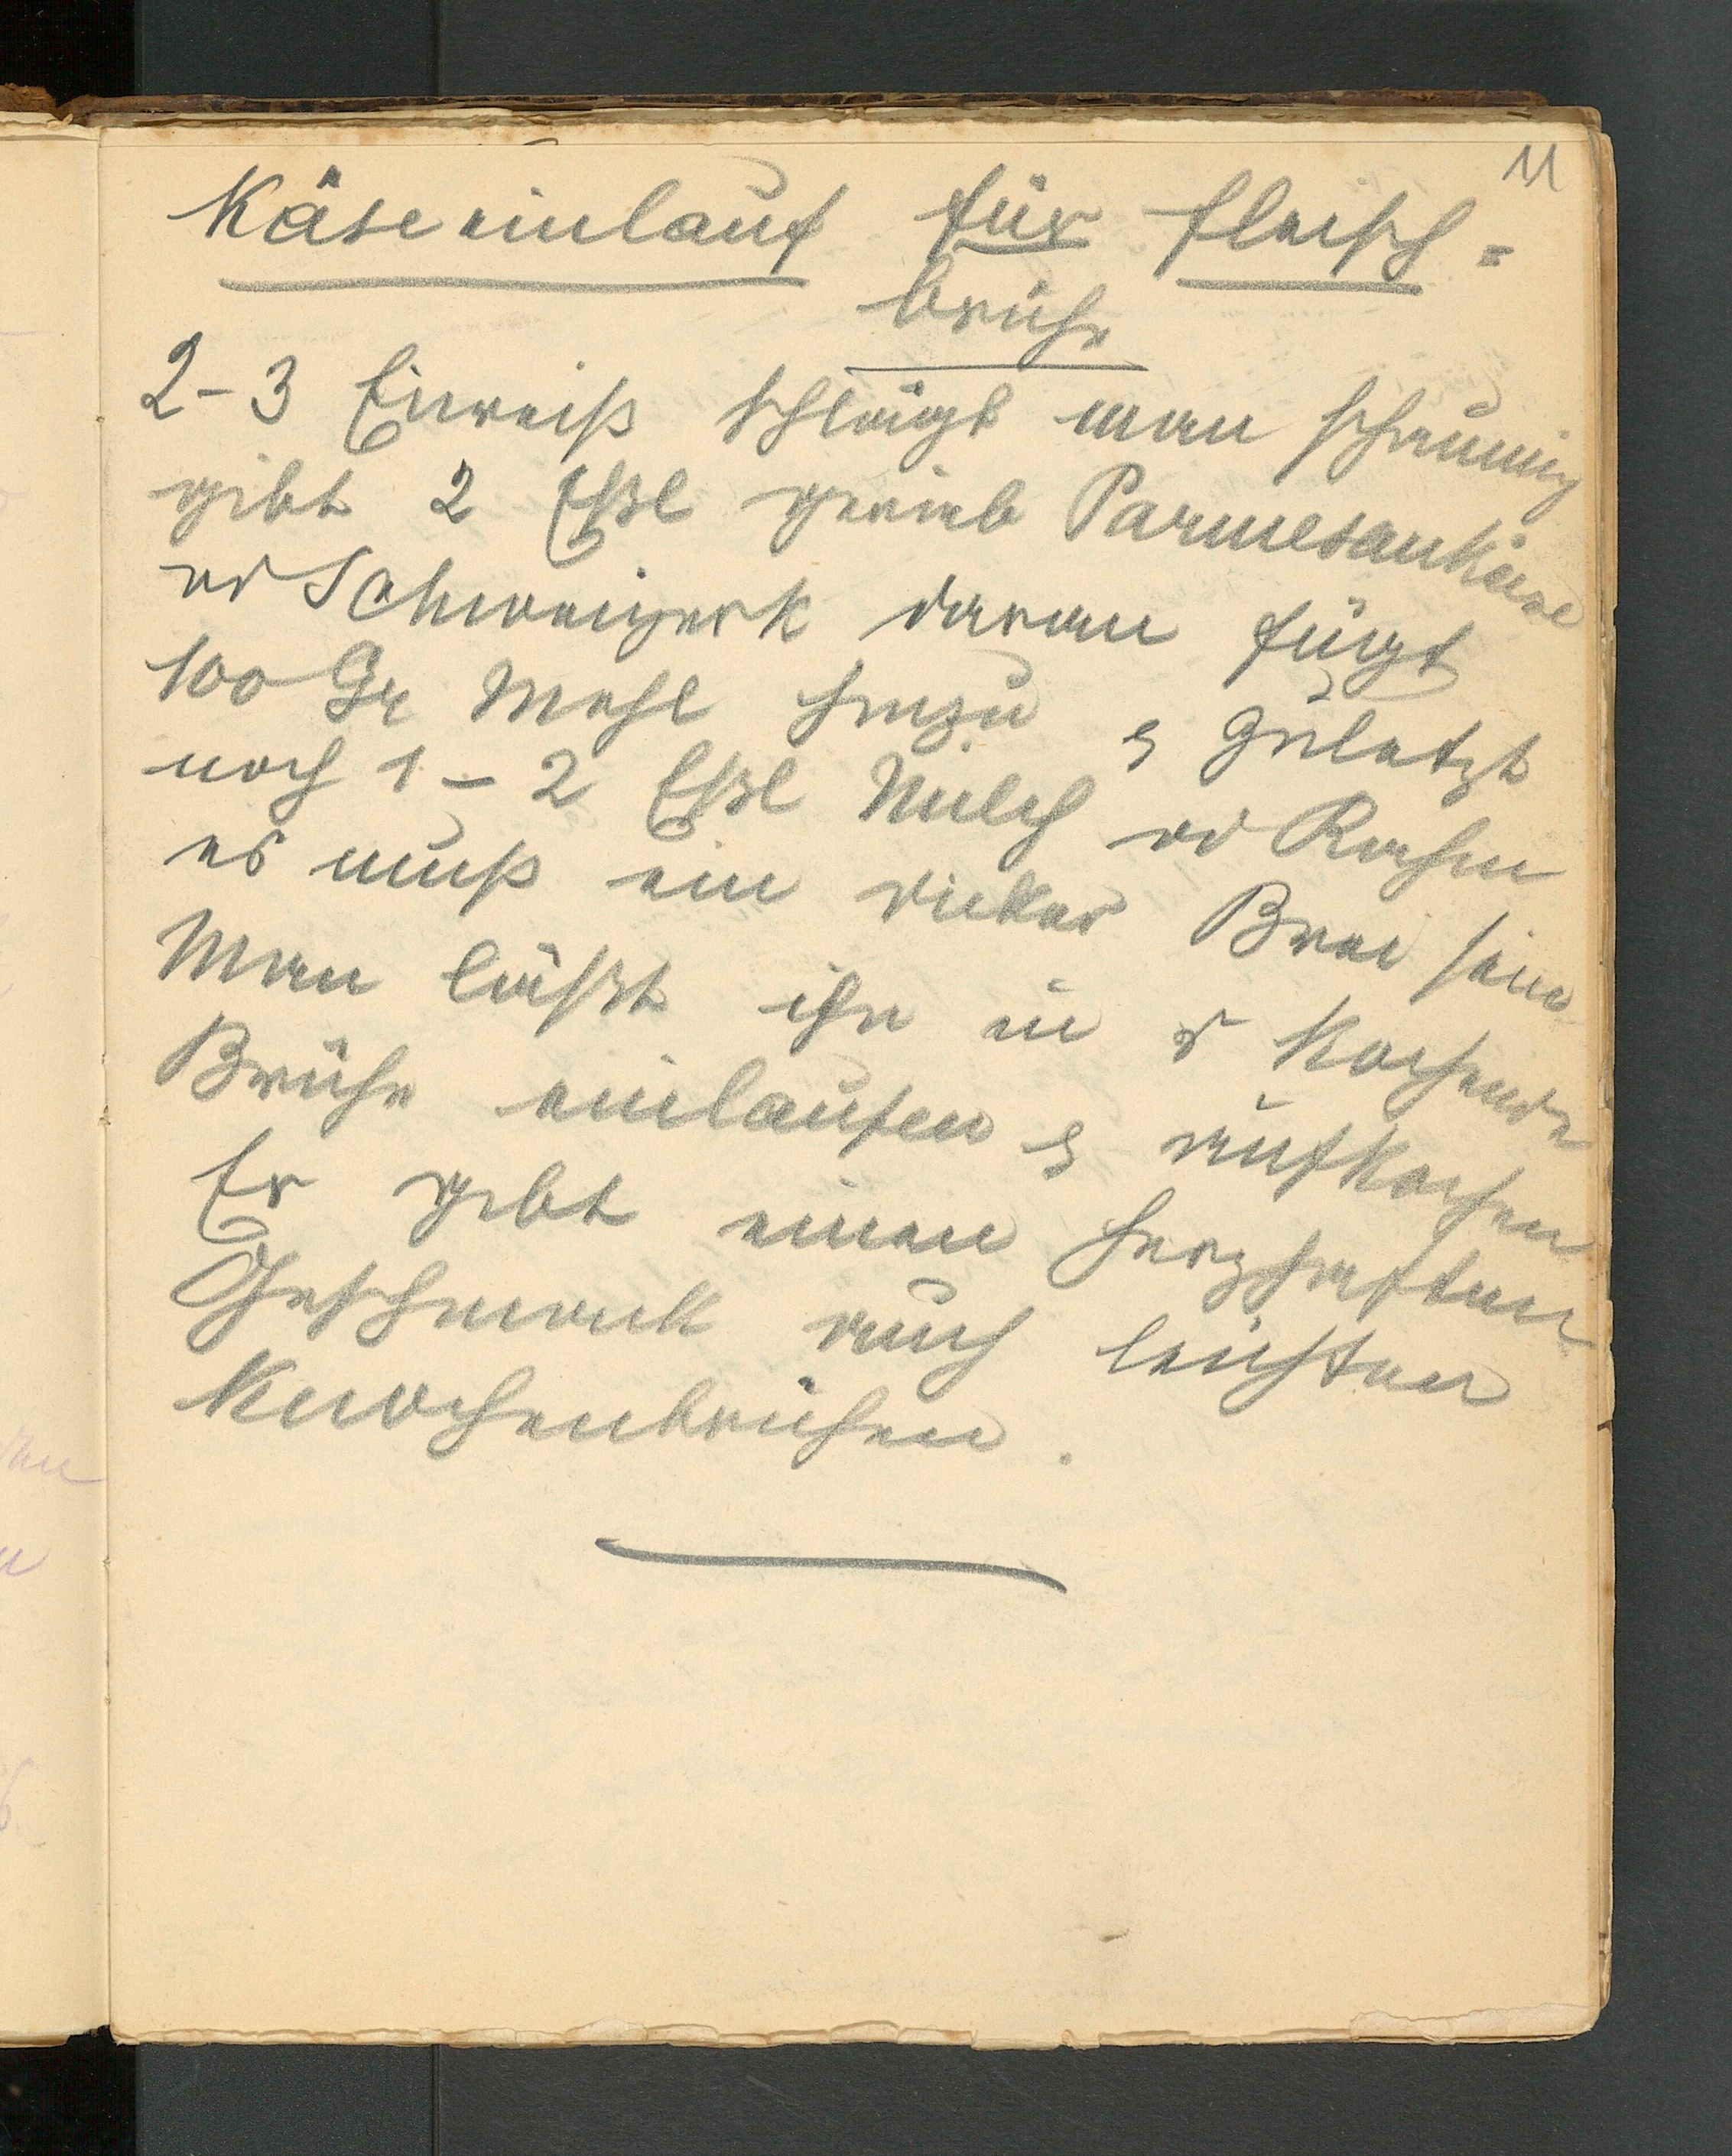 11
Käseeinlauf für Fleisch=
brühe
2-3 Eiweiß schlägt man schaumig
gibt 2 Eßl gerieb Parmesankäse
od Schweizerk daran fügt
100 Gr Mehl hinzu & zuletzt
noch 1-2 Eßl Milch od Rahm
es muß ein dicker Brei sein
Man läßt ihn in d kochende
Brühe einlaufen & aufkochen
Er gibt einen herzhaften
Geschmack auch leichten
Knochenbrühen.